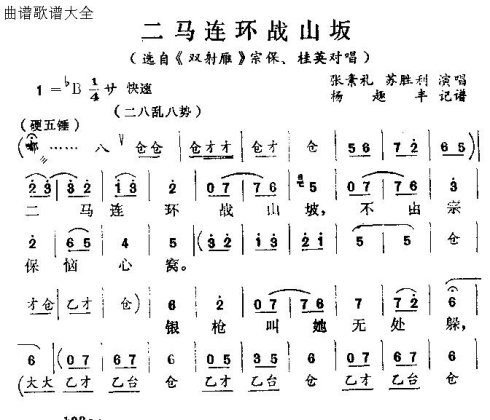 曲谱歌谱大全
二马连环战山坂
(选自《双射雁》宗保、桂英对唱)
1=♭B 1/4 サ 快速
张素礼 苏胜利 演唱
杨趣丰 记谱
(二八乱八势)
(硬五锤)
(嘟……八 仓仓 仓才才 仓才 仓 5 6 7 2 6 5)
2 3 3 2 1 3 2 0 7 7 6 5 0 7 7 6 3
二马连环战山坡,不由宗
2 6 5 4 5 (3 2 1 3 2 1 2 5 5
保恼心窝。 仓
才仓 乙才 仓) 6 2 0 7 7 6 7 7 2 6
银枪叫她无处躲,
6 (0 7 6 7 6 0 5 3 5 6 0 7 6 7 6
(大大 乙才 乙台 仓 乙才 乙台 仓 乙才 乙台 仓